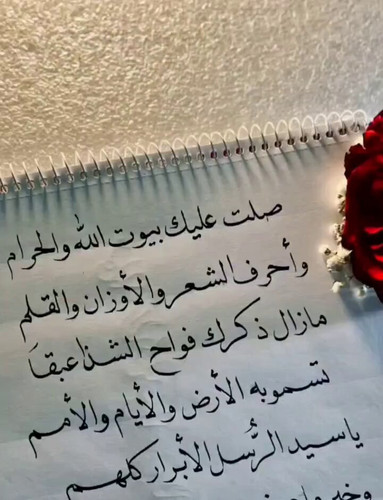 صلت عليك بيوت الله والحرام
وأحرف الشعر والأوزان والقلم
مازال ذكرك فواح الشذا عبقاً
تسمو به الأرض والأيام والأمم
ياسيد الرُّسل الأبرار كلهم